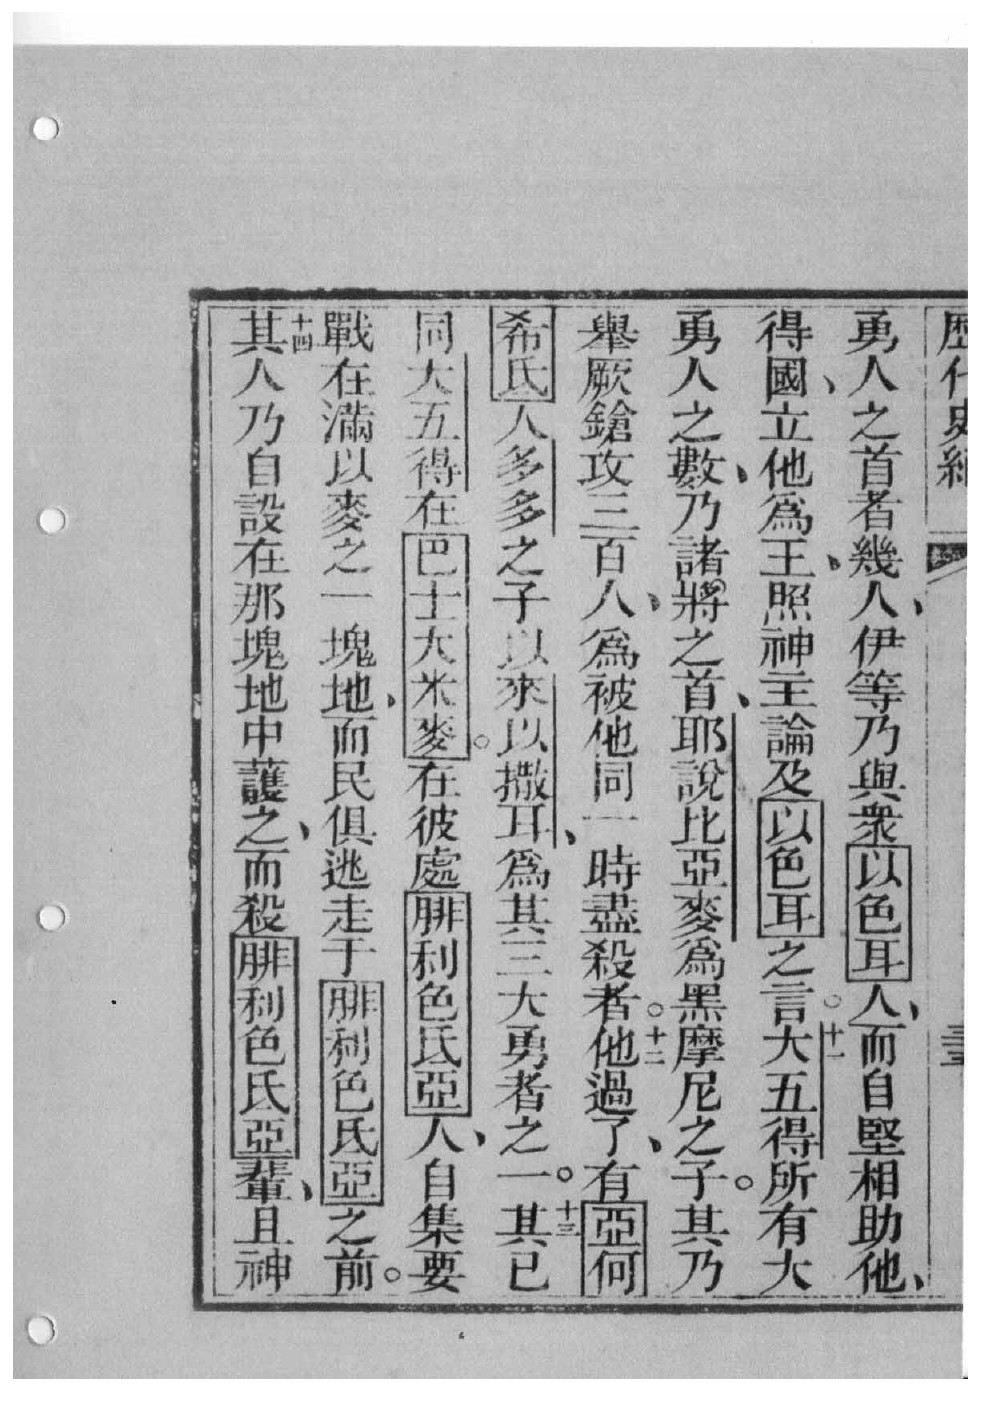 歷代史紀
勇人之首者幾人、伊等乃與衆以色耳人、而自堅相助他、
得國、立他爲王、照神主論及以色耳之言。十一大五得所有大
勇人之數、乃諸將之首、耶說比亞麥爲黑摩尼之子。其乃
舉厥鎗攻三百人、爲被他同一時盡殺者。十二他過了、有亞何
希氏人多多之子以來以撒耳、爲其三大勇者之一。十三其已
同大五得在巴士大米麥。在彼處腓利色氏亞人、自集要
戰在滿以麥之一塊地、而民俱逃走于腓利色氏亞之前。
十四其人乃自設在那塊地中護之、而殺腓利色氏亞輩、且神